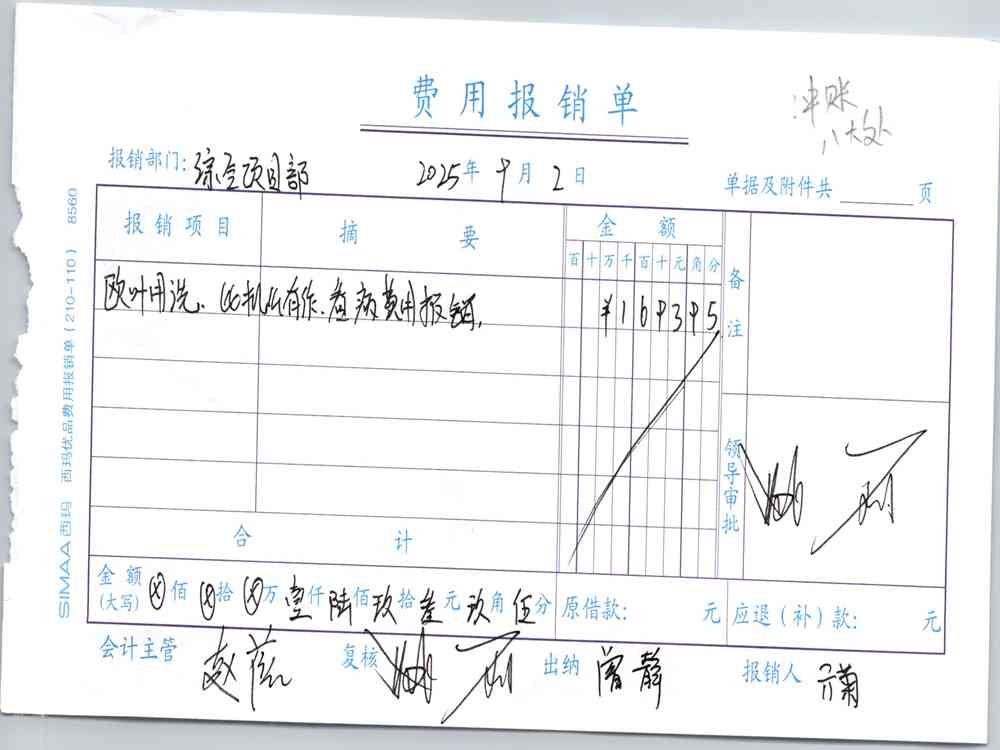 费用报销单
冲账
八大处
报销部门: 综合项目部 2025年 9月 2日 单据及附件共 页
报销项目 摘要 金额 备注
百十万千百十元角分
费用报销 ¥169395
领导审批
合计
金额(大写) ⊗佰 ⊗拾 ⊗万 壹仟 陆佰 玖拾 叁元 玖角 伍分 原借款: 元 应退(补)款: 元
会计主管 复核 出纳 曾静 报销人
SIMAA西玛 西玛优品费用报销单(210-110) 8560